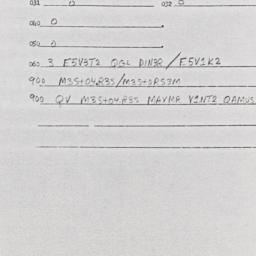 031 0 032 0
040 0
050 0
060 3 F5V3T2 QGL DIN3R / F5V1K2
900 M35+04R35/M35+0R53M
900 QV M35+04R35 MAVMR V1NT2 OAMUS